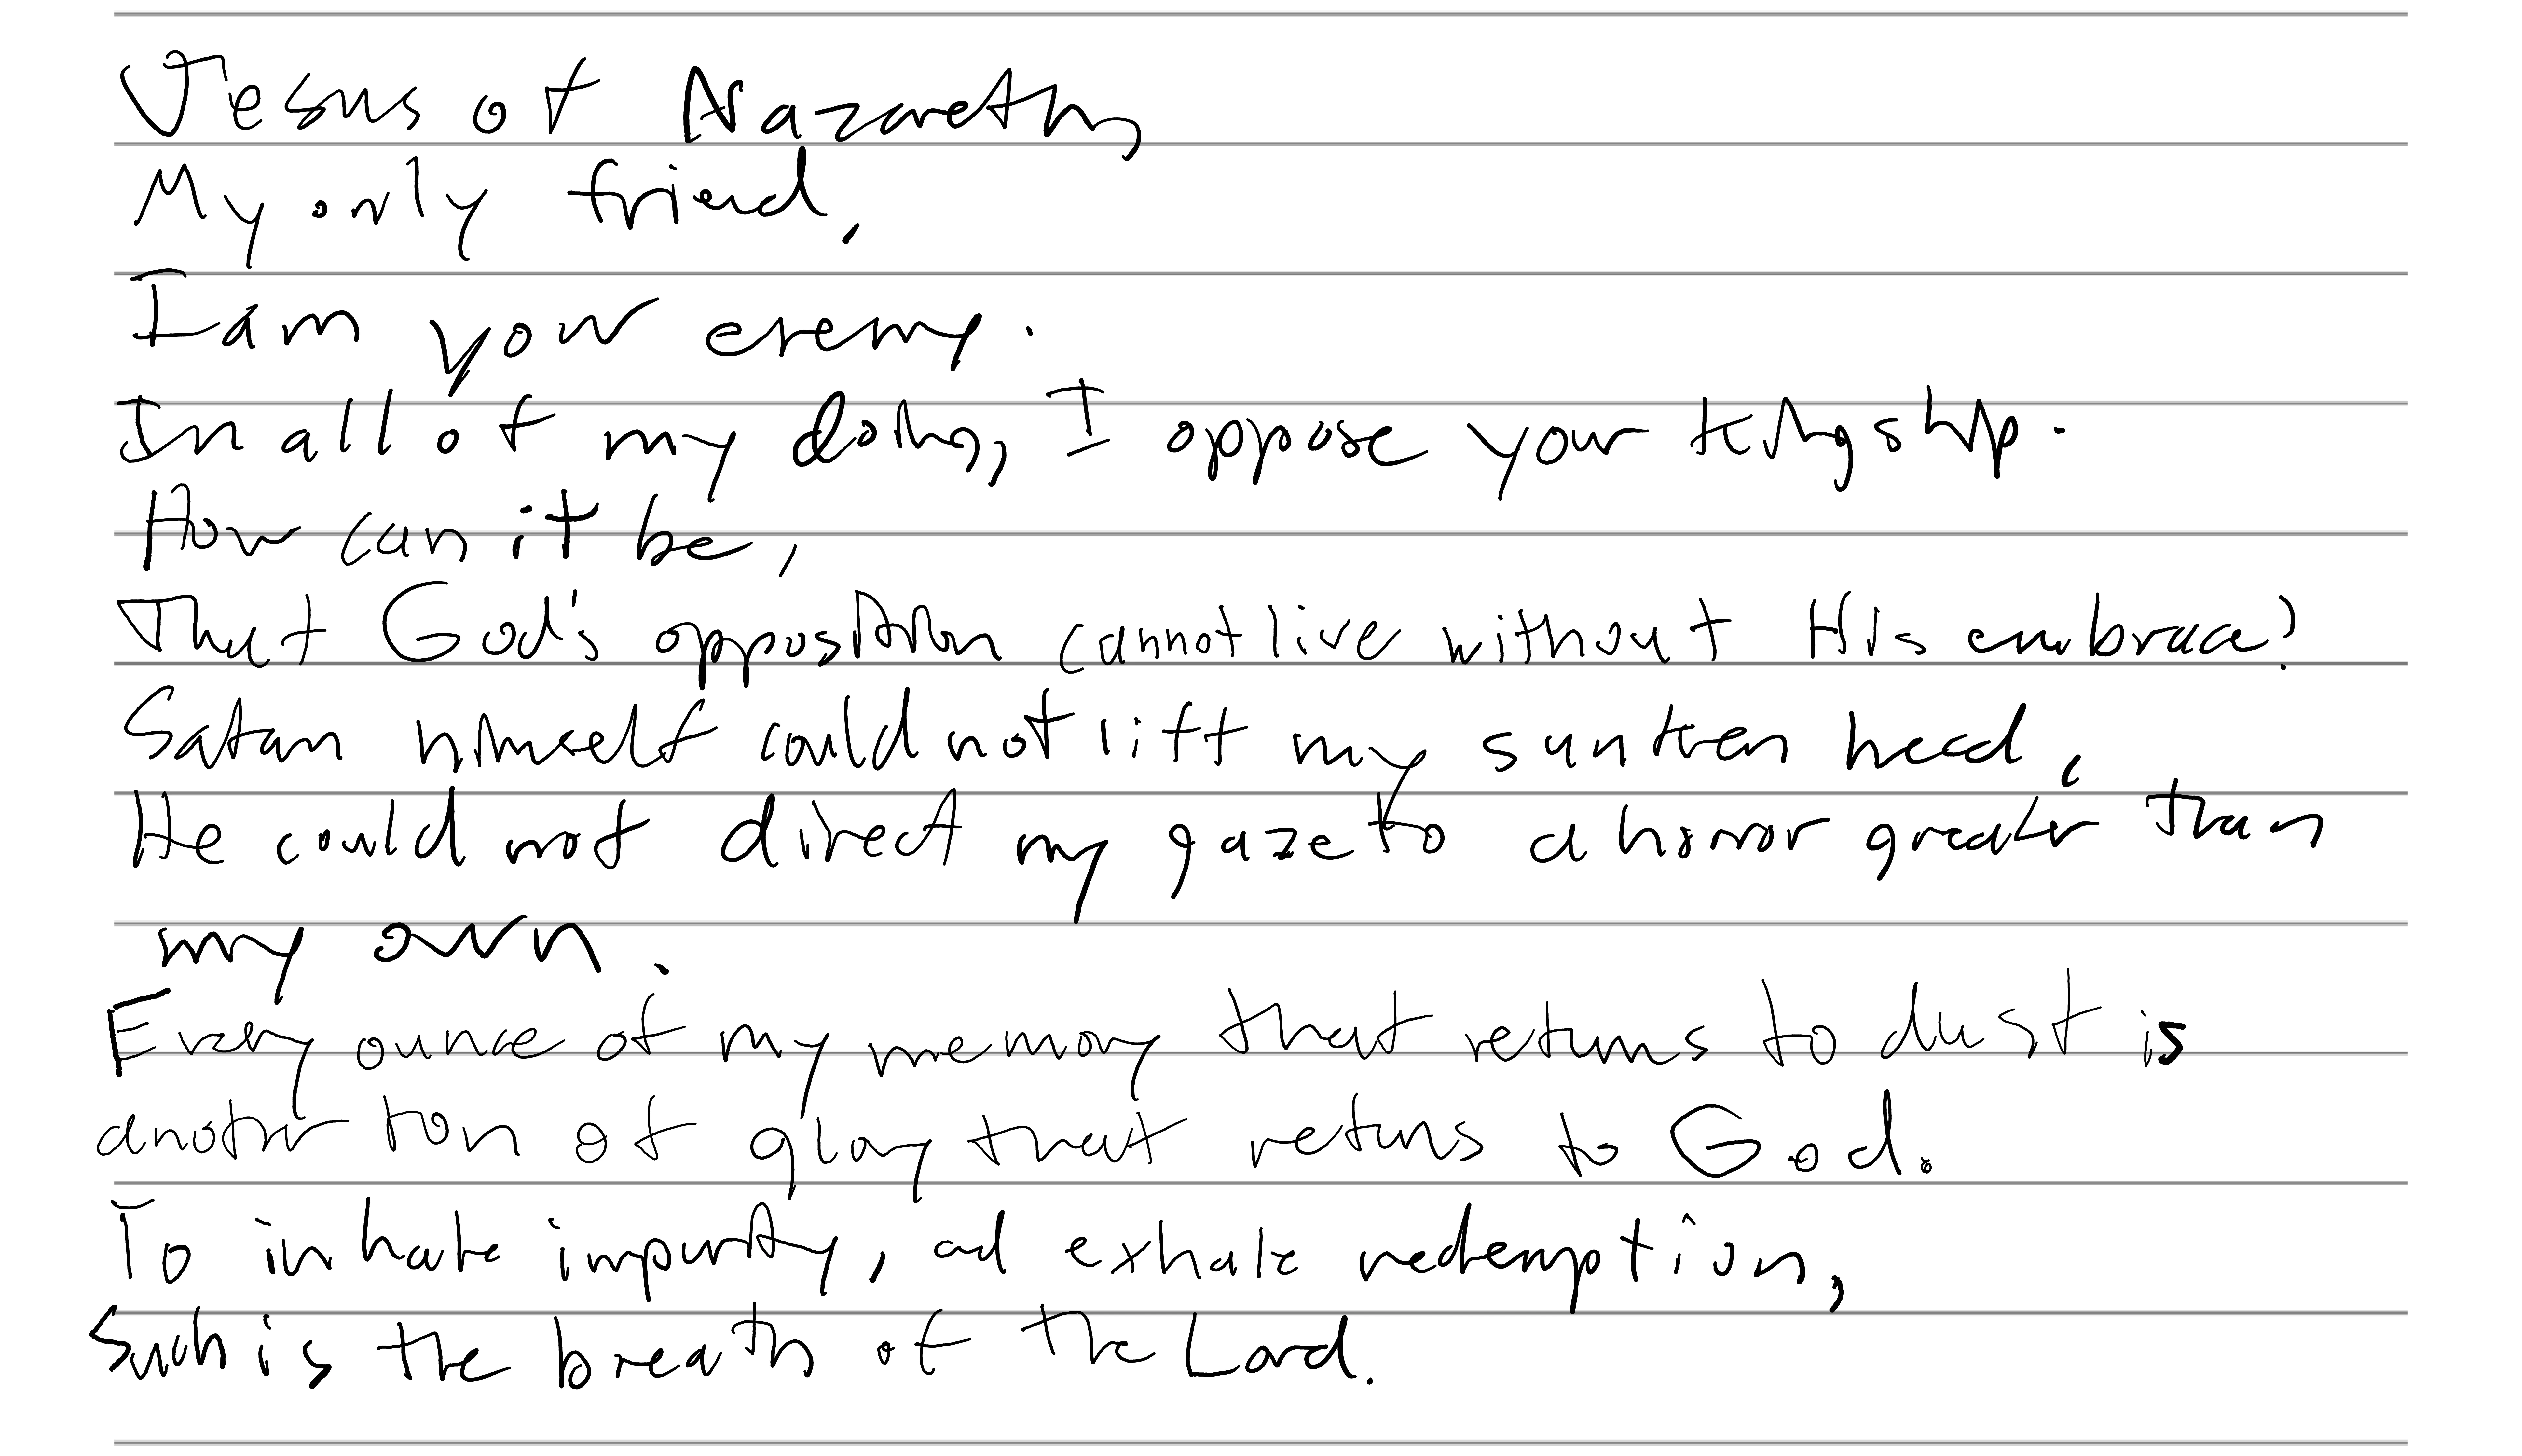 Jesus of Nazareth,
My only friend,
I am your enemy.
In all of my doing, I oppose your kingship.
How can it be,
That God's opposition cannot live without His embrace?
Satan himself could not lift my sunken head,
He could not direct my gaze to a horror greater than
my own.
Every ounce of my memory that returns to dust is
another ton of glory that returns to God.
To inhale impurity, and exhale redemption,
Such is the breath of the Lord.